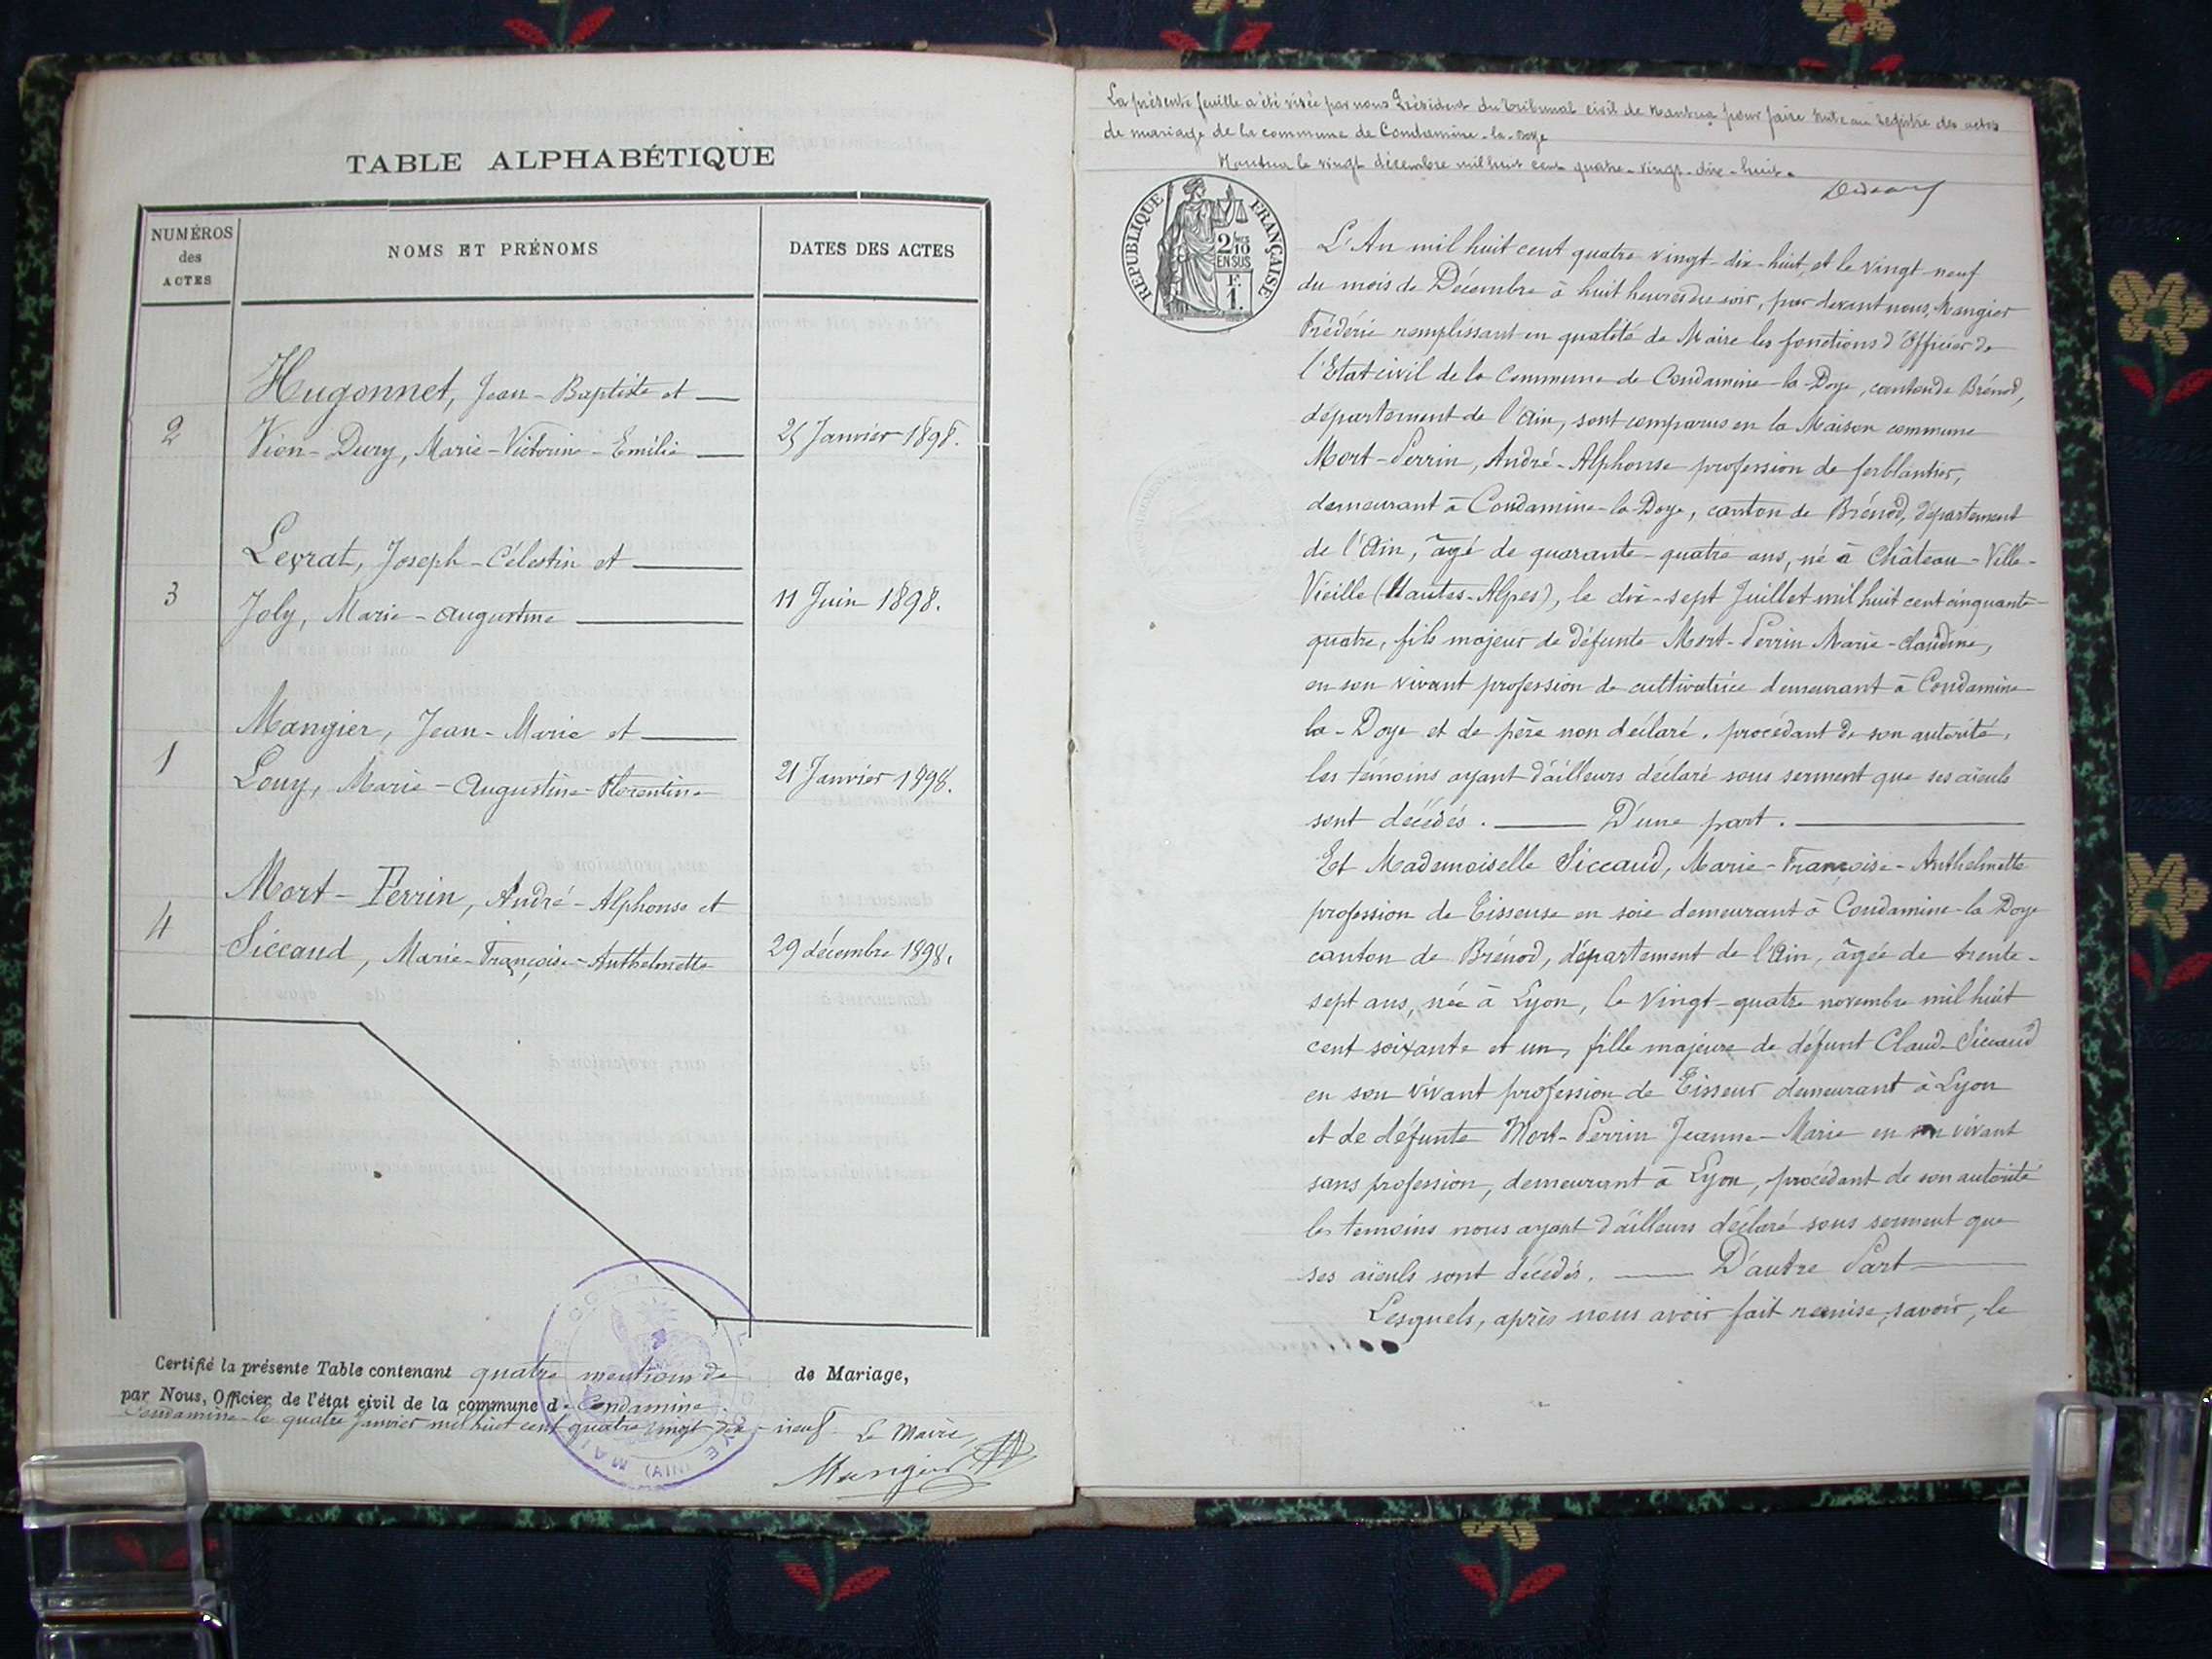 TABLE ALPHABÉTIQUE
NUMÉROS
des
ACTES
NOMS ET PRÉNOMS
DATES DES ACTES
Hugonnet, Jean-Baptiste et
2
Vion-Dury, Marie-Victorine-Emilie
25 Janvier 1898.
Levrat, Joseph-Célestin et
3
Joly, Marie-Augustine
11 Juin 1898.
Mangier, Jean-Marie et
1
Louy, Marie-Augustine-Florentine
21 Janvier 1898.
Mort-Perrin, André-Alphonse et
4
Siccaud, Marie-Françoise-Anthelmette
29 décembre 1898.
Certifié la présente Table contenant quatre mentions de de Mariage,
par Nous, Officier de l'état civil de la commune de Condamine.
Condamine le quatre Janvier mil huit cent quatre vingt dix-neuf. Le Maire,
Mangier
MAI (AIN)
La présente feuille a été visée par nous Président du tribunal civil de Nantua pour faire suite au registre des actes
de mariage de la commune de Condamine-la-Doye
Nantua le vingt décembre mil huit cent quatre-vingt-dix-huit.
RÉPUBLIQUE FRANÇAISE
2/10
EN SUS
F.
1.
L'An mil huit cent quatre vingt-dix-huit, et le vingt-neuf
du mois de Décembre à huit heures du soir, par devant nous, Mangier
Frédéric remplissant en qualité de Maire les fonctions d'Officier de
l'Etat civil de la Commune de Condamine-la-Doye, canton de Brénod,
département de l'Ain, sont comparus en la Maison commune
Mort-Perrin, André-Alphonse profession de ferblantier,
demeurant à Condamine-la-Doye, canton de Brénod, département
de l'Ain, âgé de quarante-quatre ans, né à Château-Ville-
Vieille (Hautes-Alpes), le dix-sept Juillet mil huit cent cinquante-
quatre, fils majeur de défunte Mort-Perrin Marie-Claudine,
en son vivant profession de cultivatrice demeurant à Condamine-
la-Doye et de père non déclaré, procédant de son autorité,
les témoins ayant d'ailleurs déclaré sous serment que ses aïeuls
sont décédés. D'une part.
Et Mademoiselle Siccaud, Marie-Françoise-Anthelmette
profession de Tisseuse en soie demeurant à Condamine-la Doye
canton de Brénod, département de l'Ain, âgée de trente-
sept ans, née à Lyon, le vingt-quatre novembre mil huit
cent soixante et un, fille majeure de défunt Claude Siccaud
en son vivant profession de Tisseur demeurant à Lyon
et de défunte Mort-Perrin Jeanne-Marie en son vivant
sans profession, demeurant à Lyon, procédant de son autorité
les temoins nous ayant d'ailleurs déclaré sous serment que
ses aïeuls sont décédés. D'autre Part
Lesquels, après nous avoir fait remise, savoir, le